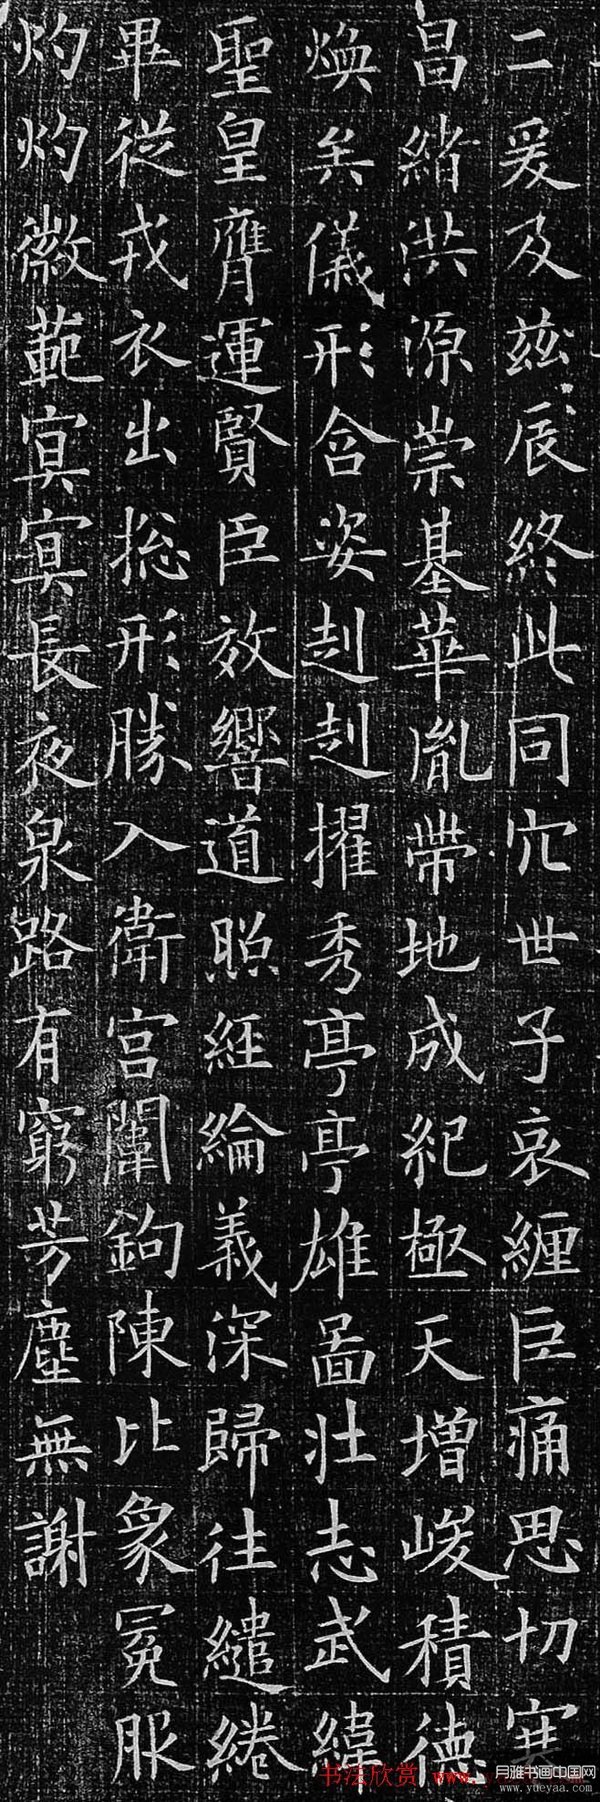 二爰及茲辰終此同穴世子哀纏臣痛思切寞
昌緒洪源崇基華胤帶地成紀極天增峻積德
煥矣儀形含姿赳赳擢秀亭亭雄啚壯志武緯
聖皇膺運賢臣放響道照經綸義深歸往繾綣
畢從戎衣出揔形勝入衛宮闈鉤陳比象冕服
灼灼徽範寘寘長夜泉路有窮芳塵無謝
书法欣赏
月雅书画中国网
www.yueyaa.com